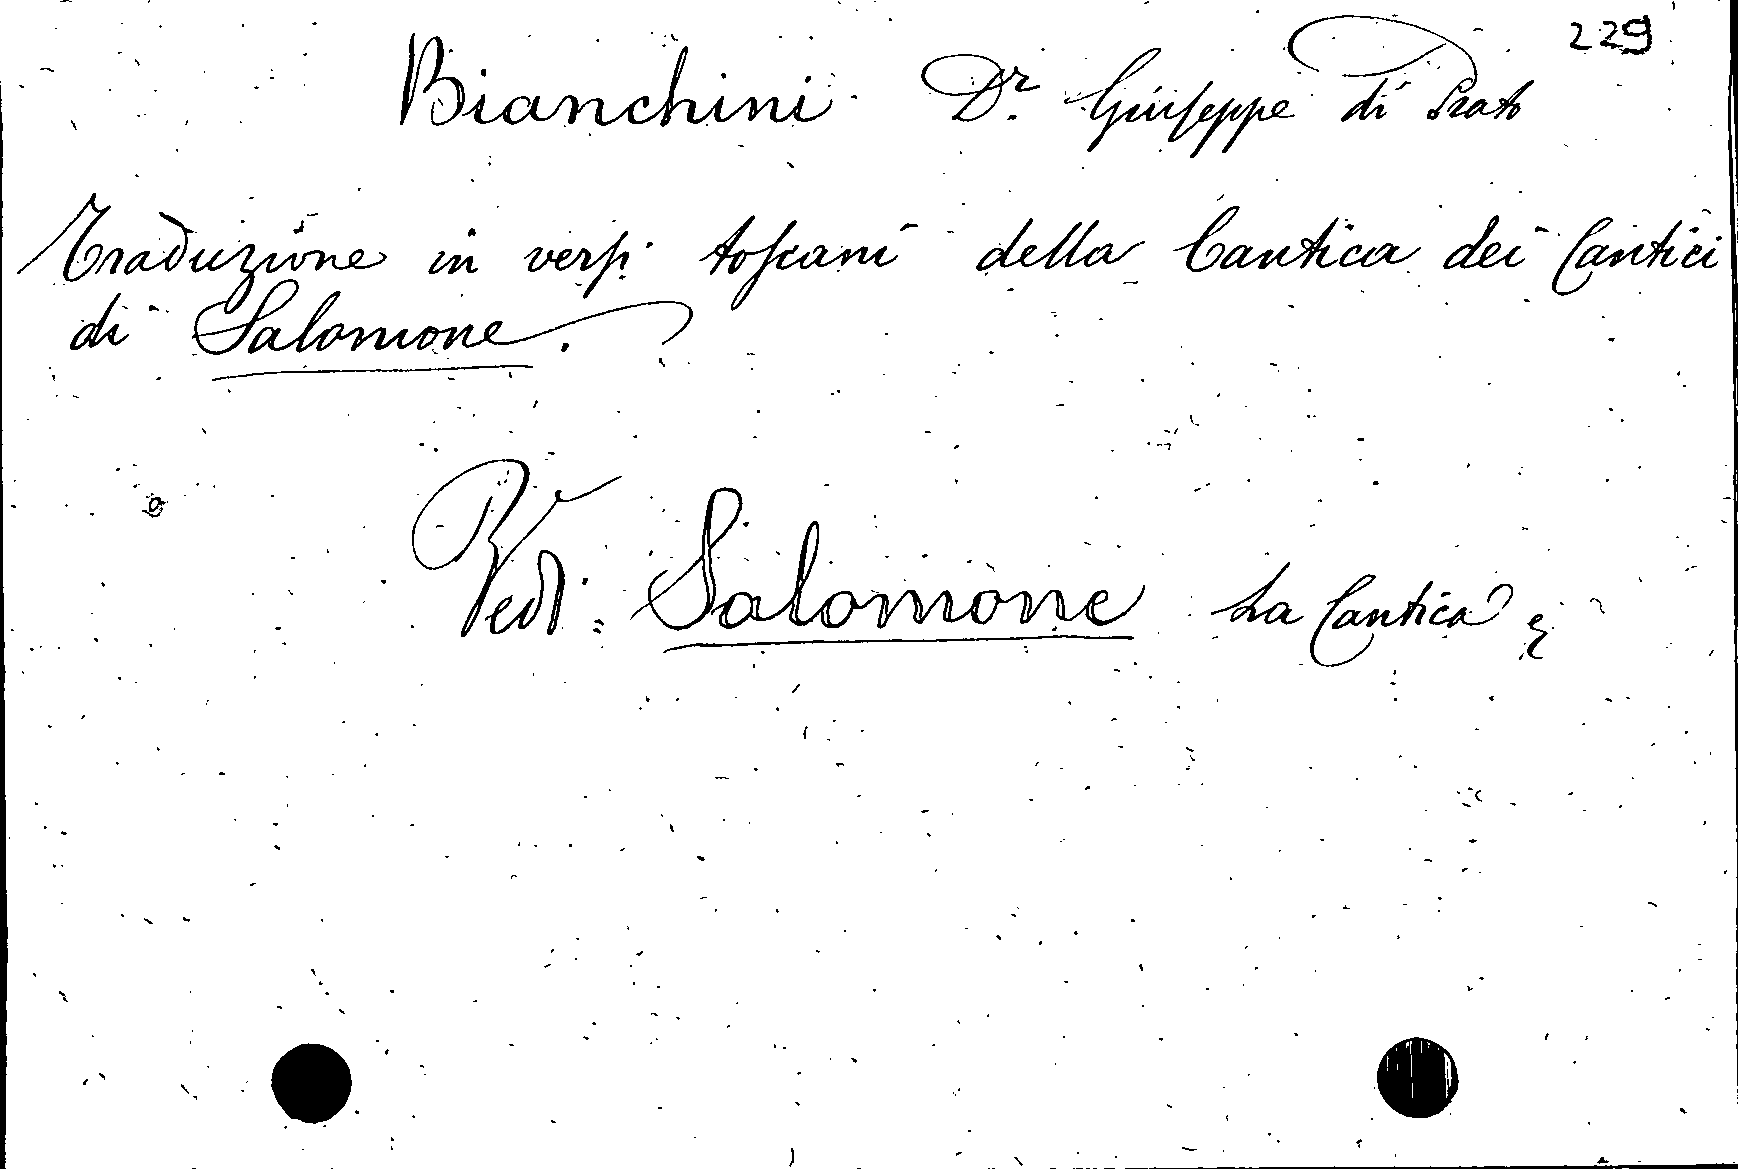 229
Bianchini Dr. Giuseppe di Prato
Traduzione in versi toscani della Cantica dei Cantici
di Salomone.
Vedi: Salomone La Cantica